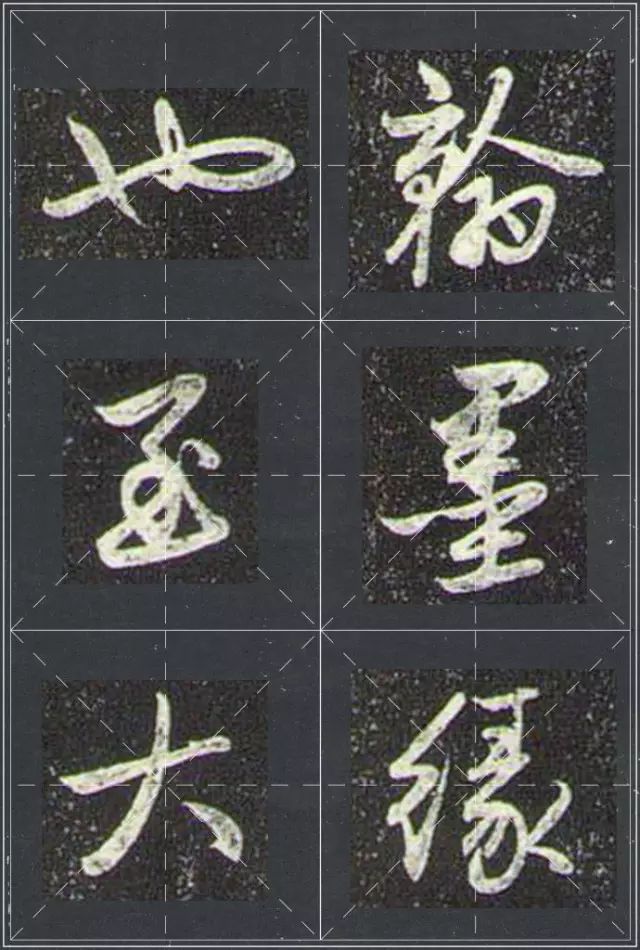 翰墨缘
也至大